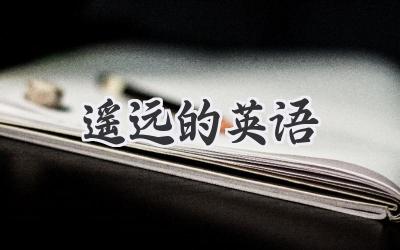 遥远的英语